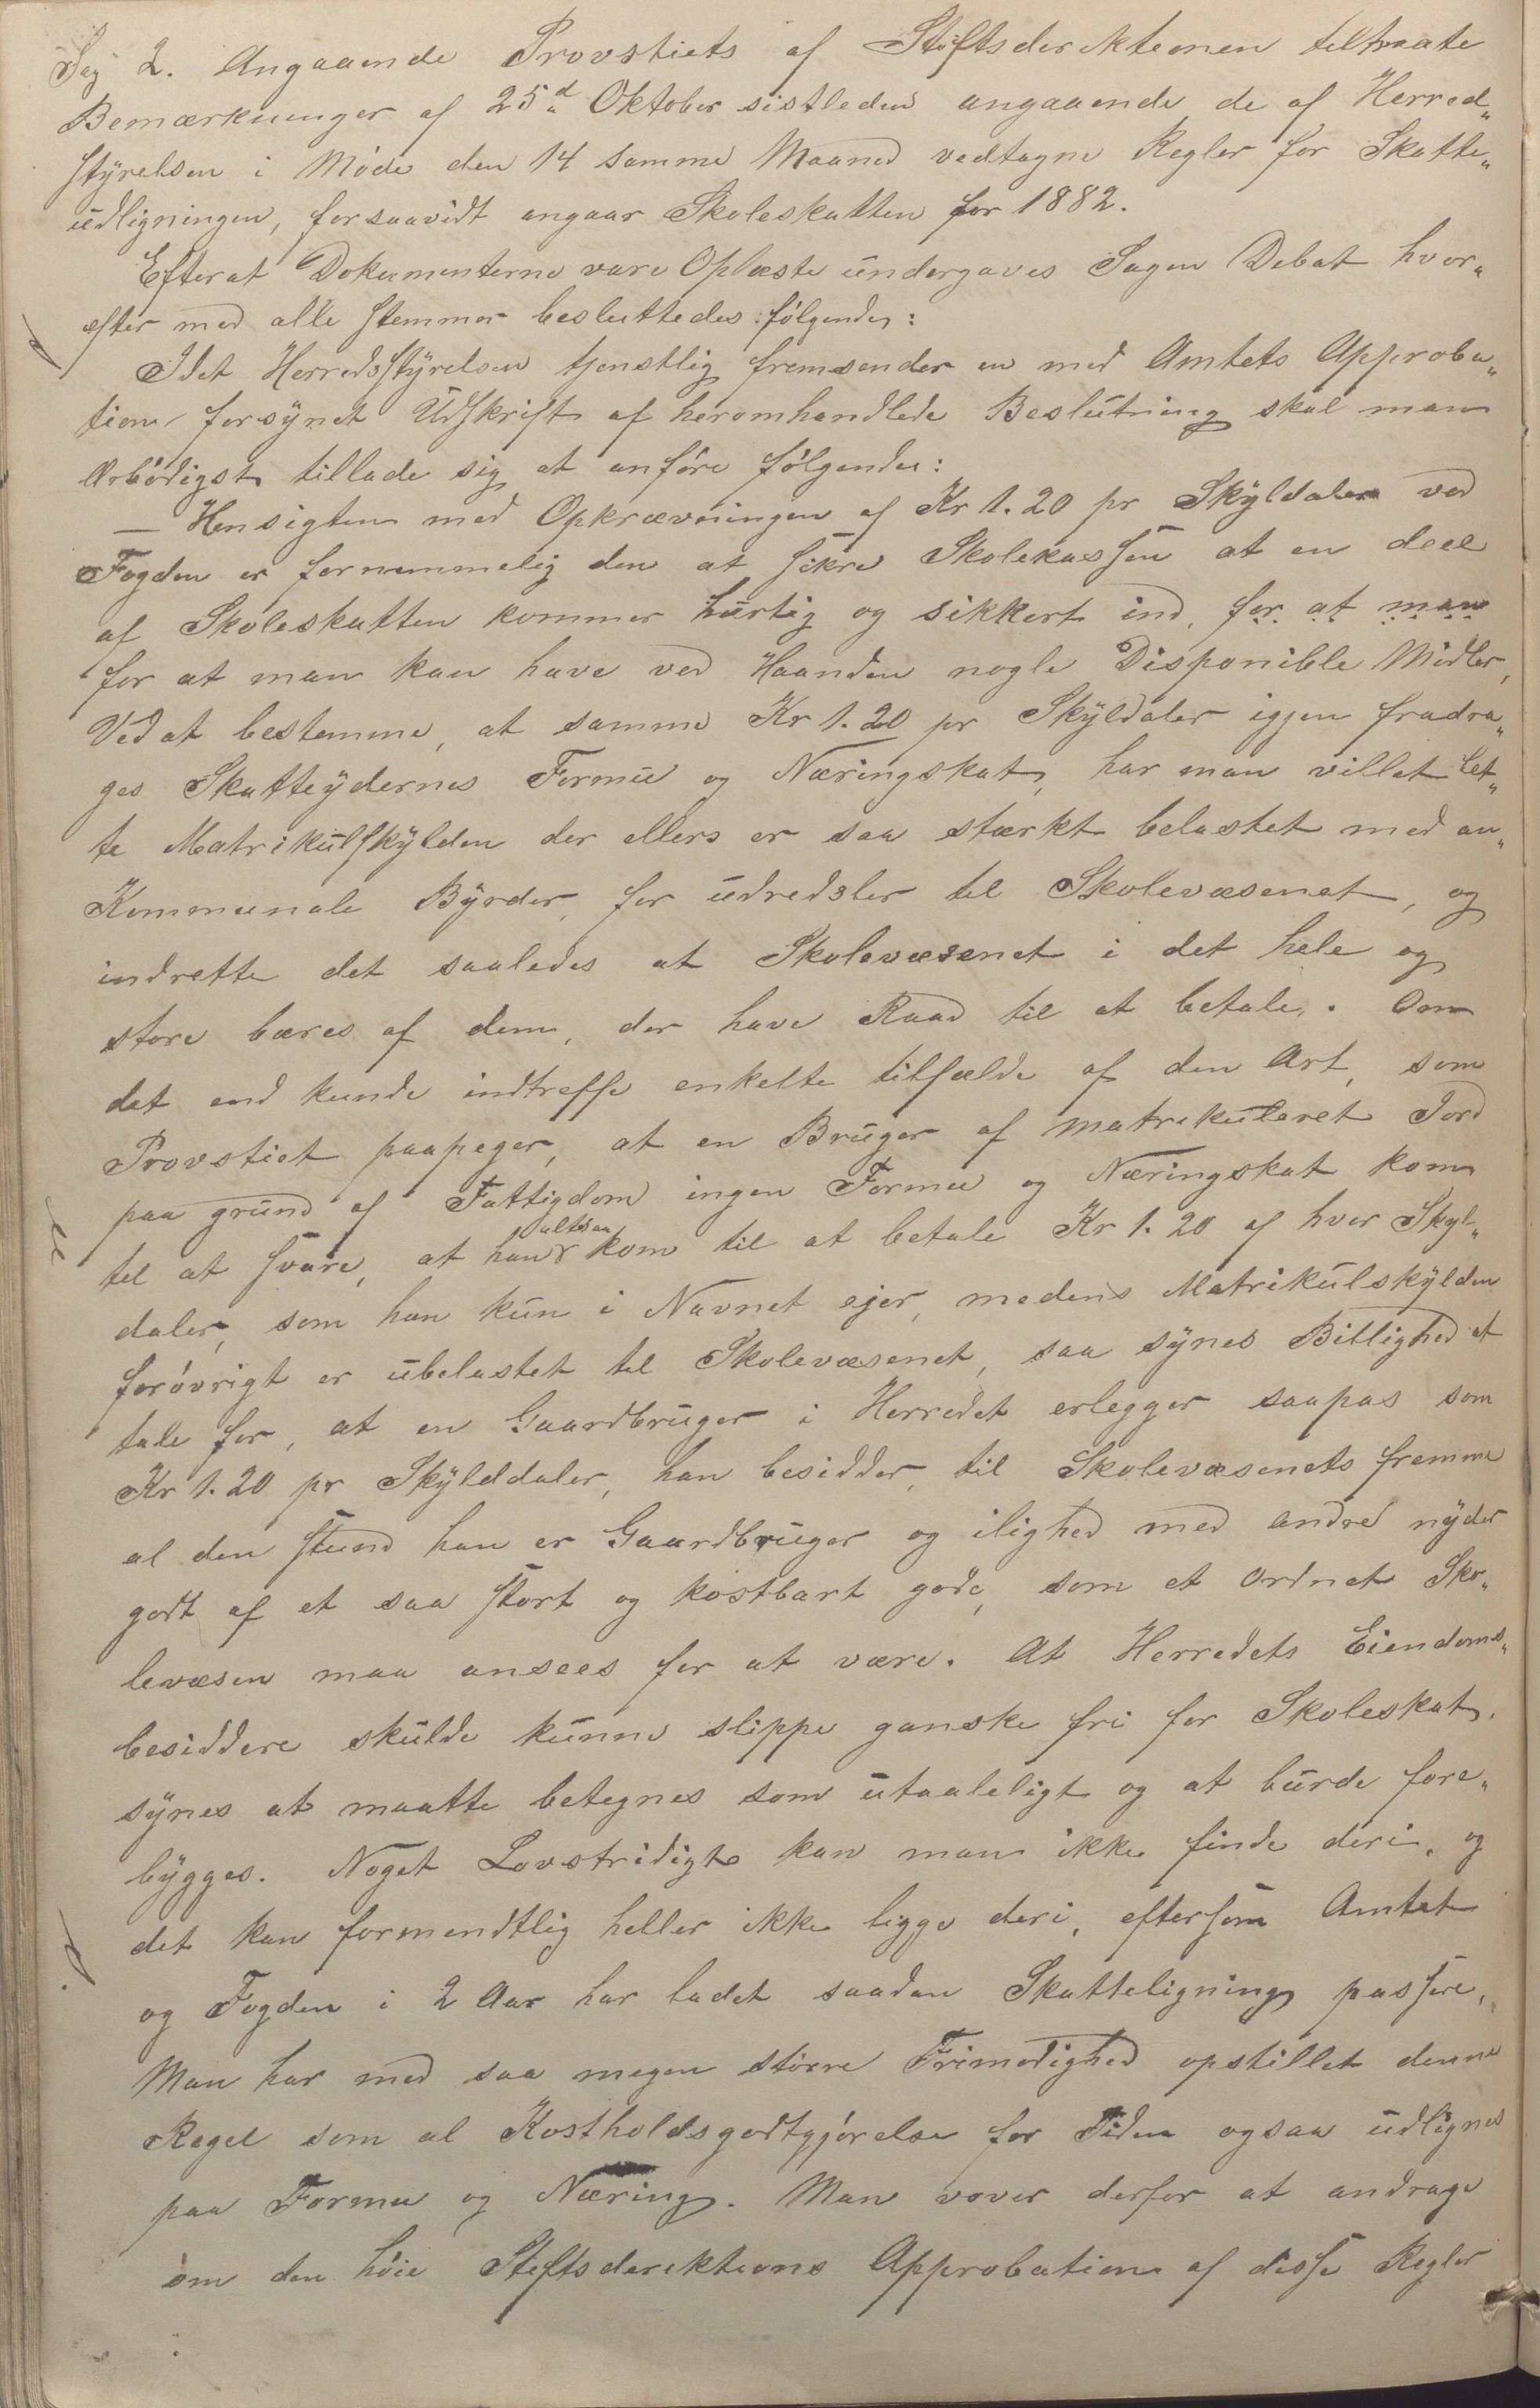 Sag 2. Angaaende Provstiets af Stiftsdirektionen tiltraate
Bemærkninger af 25d„ Oktober sistleden angaaende de af Herred„
styrelsen i Møde den 14 samme Maaned vedtagne Regler for Skatte„
udligningen, forsaavidt angaar Skoleskatten for 1882.
Efterat Dokumenterne vare Oplæste undergaves Sagen Debat hvor„
efter med alle stemmer besluttedes følgende:
Idet Herredsstyrelsen tjenstlig fremsender en med Amtets Approba„
tion forsynet Udskrift af heromhandlede Beslutning skal man
ærbødigst tillade sig at anføre følgende:
— Hensigten med Opkrævningen af Kr 1.20 pr Skyldaler ved
Fogden er fornemmelig den at sikre Skolekassen at en deel
af Skoleskatten kommer hurtig og sikkert ind, for at man
for at man kan have ved Haanden nogle Disponible Midler,
Ved at bestemme, at samme Kr 1.20 pr Skyldaler igjen fradra„
ges Skatteydernes Formu og Næringskat, har man villet let„
te Matrikulskylden der ellers er saa stærkt belastet med an„
Kommunale Byrder, for udredsler til Skolevæsenet, og
indrette det saaledes at Skolevæsenet i det hele og
store bæres af dem, der have Raad til at betale. Om
det end kunde indtreffe enkelte tilfælde af den Art, som
Provstiet paapeger, at en Bruger af matrikuleret Jord
paa grund af Fattigdom ingen Formu og Næringskat kom
til at svare, at han altsaa kom til at betale Kr 1.20 af hver Skyl„
daler, som han kun i Navnet ejer, medens Matrikulskylden
forøvrigt er ubelastet til Skolevæsenet, saa synes Billighed at
tale for, at en Gaardbruger i Herredet erlegger saapas som
Kr 1.20 pr Skylddaler, han besidder, til Skolevæsenets fremme
al den stund han er Gaardbruger og ilighed med andre nyder
godt af et saa stort og kostbart gode, som et ordnet Sko„
levæsen maa ansees for at være. At Herredets Eiendoms„
besiddere skulde kunne slippe ganske fri for Skoleskat,
synes at maatte betegnes som utaaleligt og at burde fore„
bygges. Noget Lovstridigt kan man ikke finde deri, og
det kan formendtlig heller ikke ligge deri, eftersom Amtet
og Fogden i 2 Aar har ladet saadan Skatteligning passere,
Man har med saa megen større Frimodighed opstillet denne
Regel som al Kostholdsgodtgjørelse for Tiden ogsaa udlignes
paa Formu og Næring. Man vover derfor at andrage
om den høie Stiftsdirektions Approbation af disse Regler